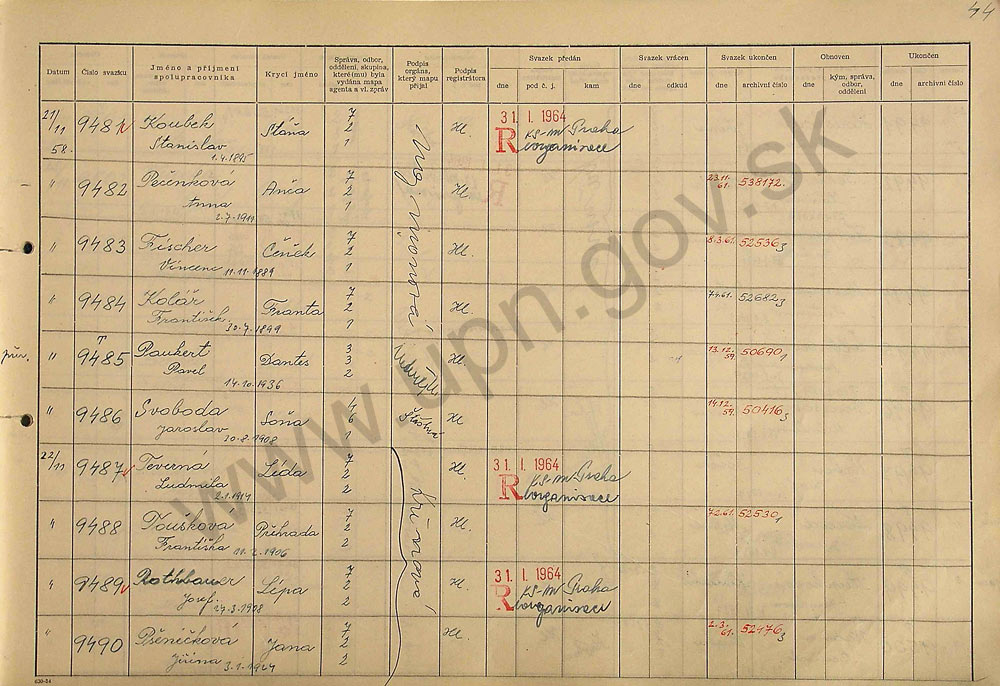 44
Datum
Číslo svazku
Jméno a příjmení
spolupracovníka
Krycí jméno
Správa, odbor,
oddělení, skupina,
které(mu) byla
vydána mapa
agenta a vl. zpráv
Podpis
orgána,
který mapu
přijal
Podpis
registrátora
Svazek předán
dne
pod č. j.
kam
Svazek vrácen
dne
odkud
Svazek ukončen
dne
archivní číslo
Obnoven
dne
kým, správa,
odbor,
oddělení
Ukončen
dne
archivní číslo
21/11 58. 9481 Koubek Stáňa 7 2 1 Hl. 31. I. 1964
Stanislav R KS-MV Praha
1.4.1895 reorganisace
" 9482 Pečenková Anča 7 2 1 Hl. 23.11.61. 538172.
Anna
2.7.1911
" 9483 Fischer Čeněk 7 2 1 Hl. 8.3.61. 52536 3
Vincenc 11.11.1889
" 9484 Kolář Franta 7 2 1 Hl. 7.4.61. 52682 3
František 30.7.1899
" 9485 Paukert Dantes 3 3 2 Hl. 13.12.59. 50690 1
Pavel
14.10.1936
" 9486 Svoboda Soňa 4 6 1 Hl 14.12.59. 50416 3
Jaroslav 20.8.1908
22/11 9487 Teverná Lída 7 2 2 Hl. 31. I. 1964
Ludmila R KS-MV Praha
2.1.1914 reorganisace
" 9488 Toušková Přehrada 7 2 2 Hl. 7.2.61. 52530 1
Františka 11.2.1906
" 9489 Rothbauer Lépa 7 2 2 Hl. 31. I. 1964
Josef R KS-MV Praha
24.3.1908 reorganisace
" 9490 Pšeničková Jana 7 2 2 Hl. 2.3.61. 52476 3
Jiřina 3.1.1924
630-54
www.upn.gov.sk